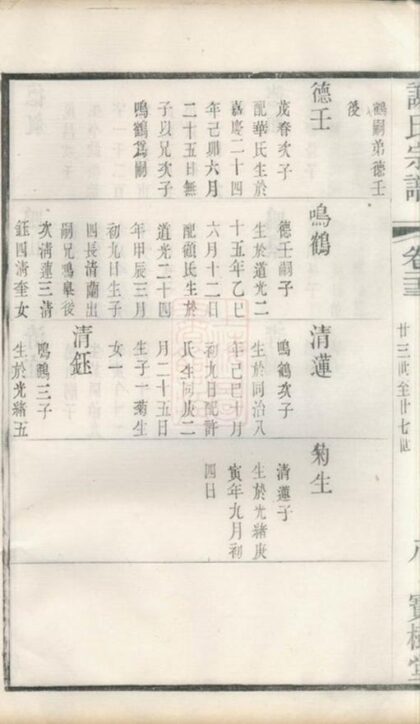 氏宗譜
廿三世至廿七世
寶樹堂
鶴嗣弟德壬
後
德壬
茂春次子
配華氏生於
嘉慶二十四
年己卯六月
二十五日無
子以兄次子
鳴鶴為嗣
鳴鶴
德壬嗣子
生於道光二
十五年乙巳
六月十二日
配顧氏生於
道光二十四
年甲辰三月
初九日生子
四長清蘭出
嗣兄鳴皋後
次清蓮三清
鈺四清奎女
清蓮
鳴鶴次子
生於同治八
年己巳月
初九日配許
氏生同庚二
月二十五日
生子一菊生
女一
清鈺
鳴鶴三子
生於光緒五
菊生
清蓮子
生於光緒庚
寅年九月初
四日